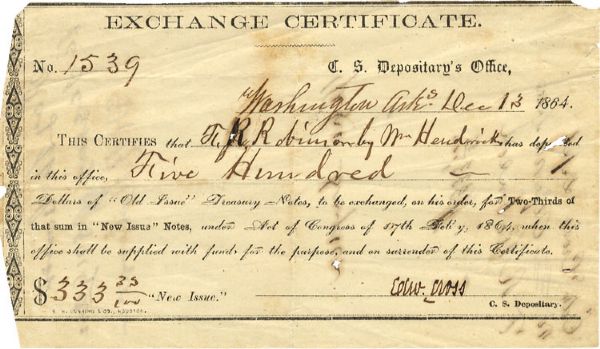 EXCHANGE CERTIFICATE.
No. 1539 C. S. Depositary's Office,
Washington Arks Dec 13 1864.
THIS CERTIFIES that R Robinson by Wm Hendricks has deposited
in this office, Five Hundred
Dollars of "Old Issue" Treasury Notes, to be exchanged, on his order, for Two-Thirds of
that sum in "New Issue" Notes, under Act of Congress of 17th Feb'y, 1864, when this
office shall be supplied with funds for the purpose, and on surrender of this Certificate.
$333 33/100 "New Issue." Edw. Cross
C. S. Depositary.